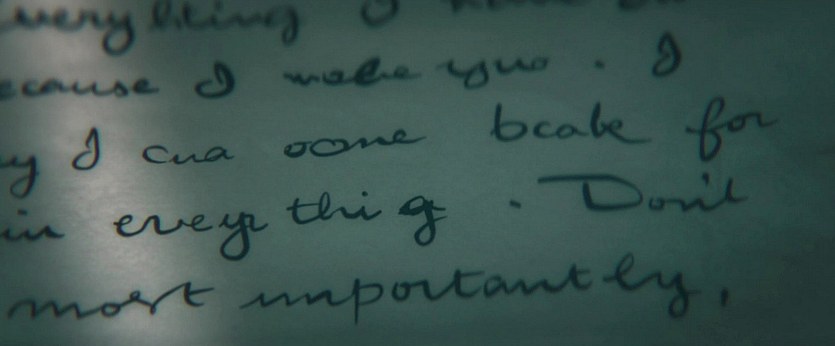 everything I
ecause I make you . I
y I cua oome bcabe for
in eveyr thi g . Don't
most importantly,